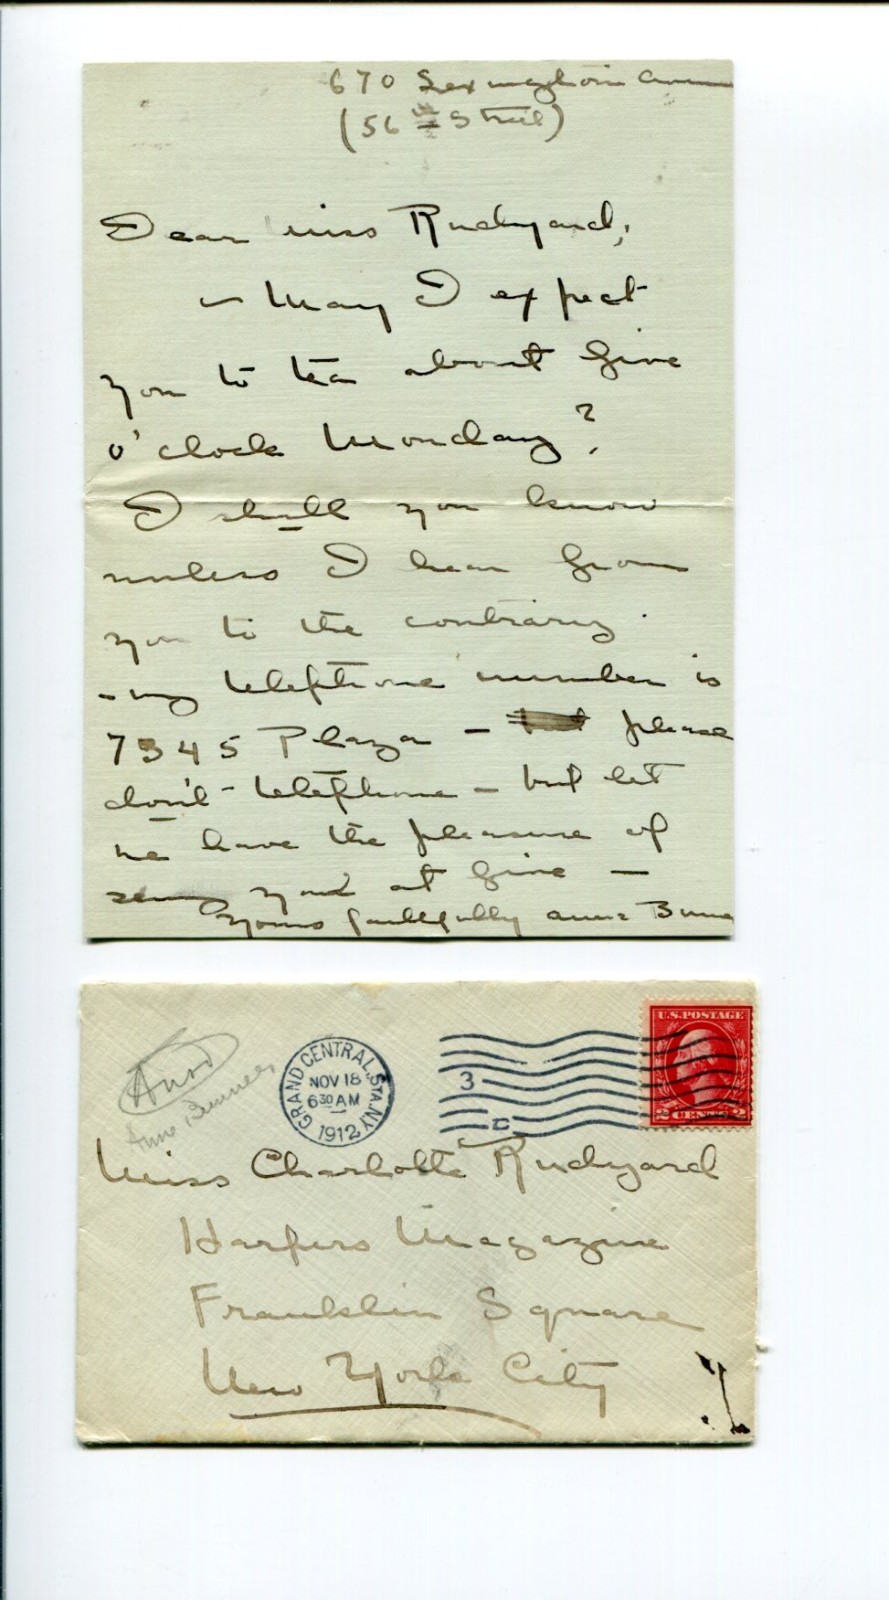 670 Lexington Avenue
(56th Street)
Dear Miss Rudyard,
– May I expect
you to tea about five
o'clock Monday?
I shall you know
unless I hear from
you to the contrary.
– my telephone number is
7345 Plaza – please
don't telephone – but let
me have the pleasure of
seeing you at five –
Yours faithfully Anne
U.S. POSTAGE
2 CENTS 2
GRAND CENTRAL STA. N.Y.
NOV 18
6 30 AM
1912
3
C
Anne
Miss Charlotte Rudyard
Harpers Magazine
Franklin Square
New York City